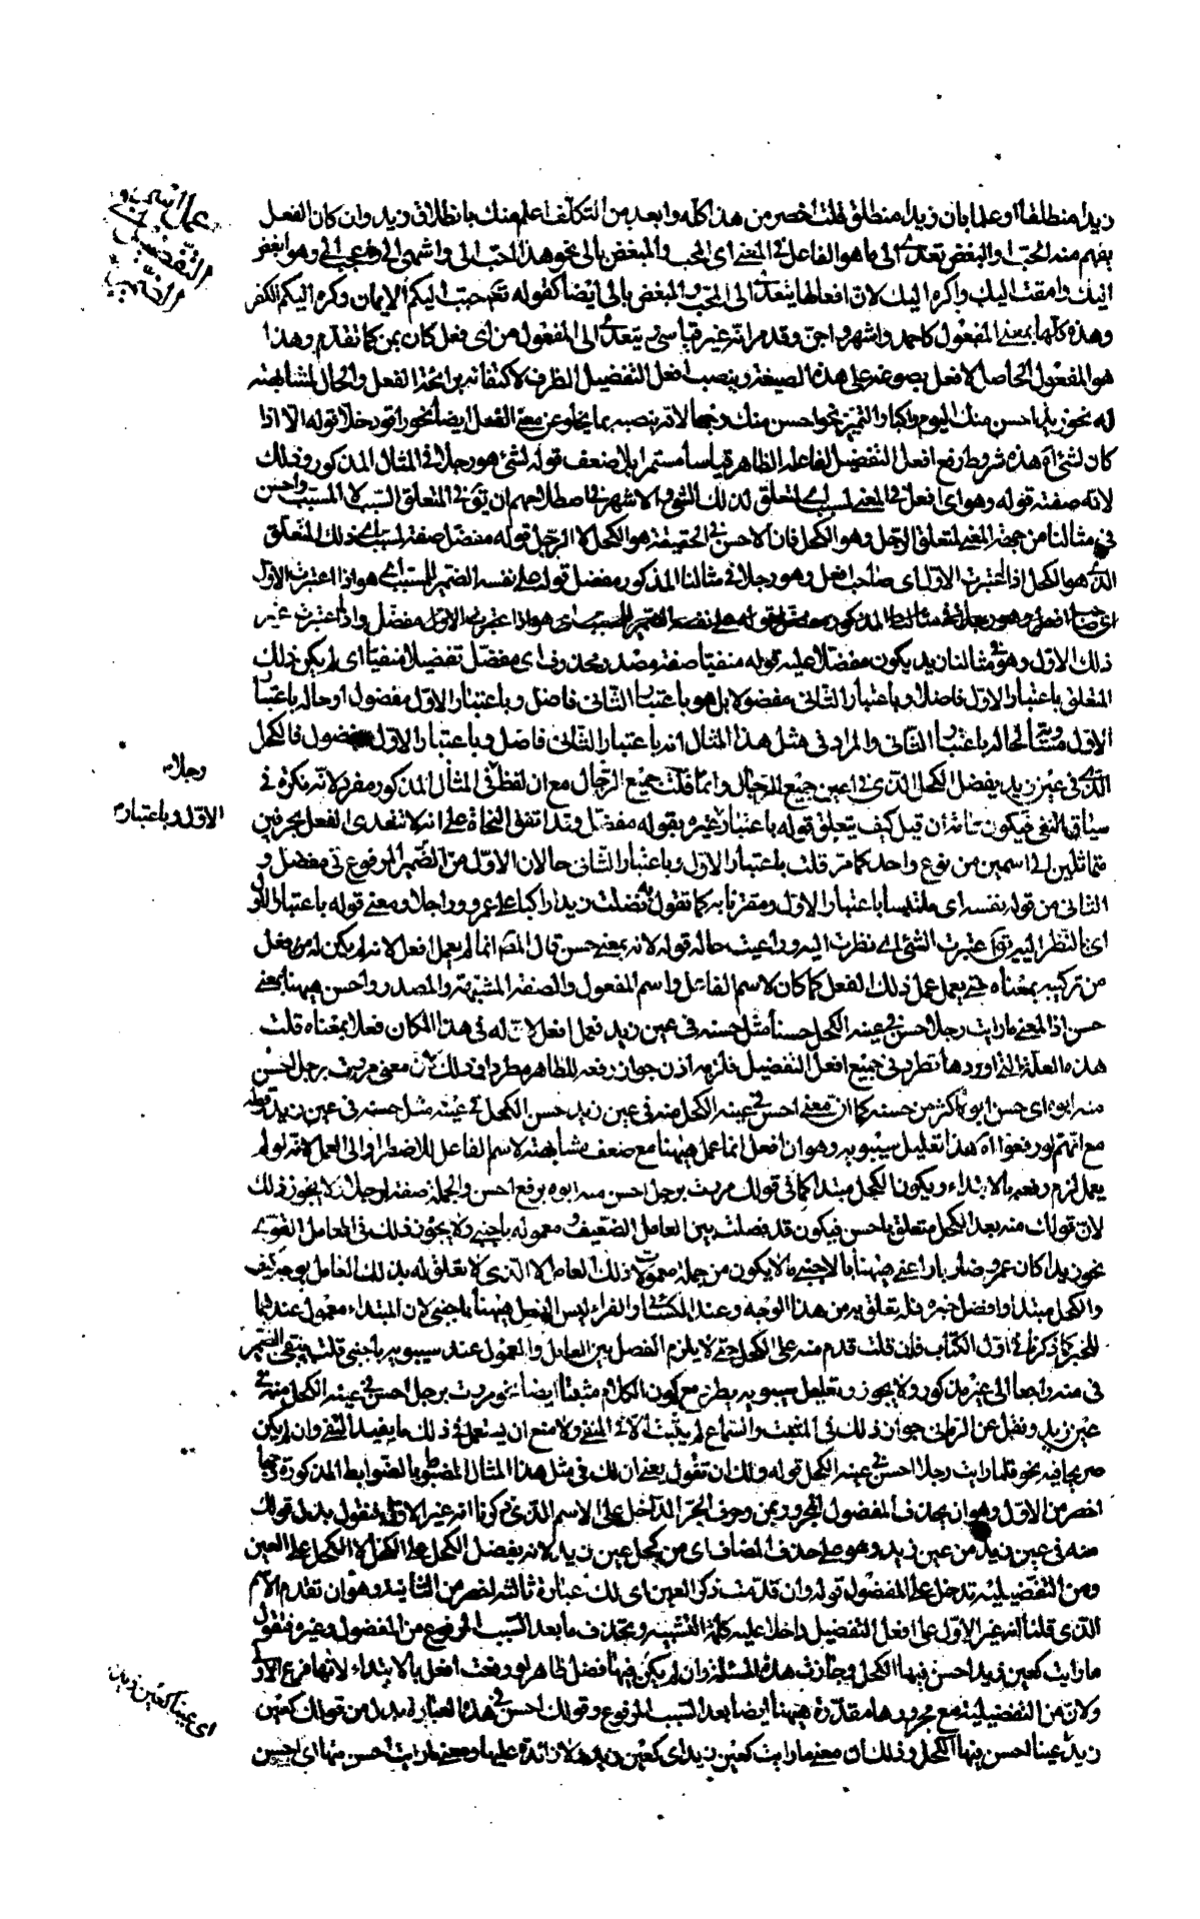 زيدا منطلقا او علما بان زيدا منطلق قلت اخصر من هذا كله وابعد من التكلف اعلم منك بانطلاق زيد وان كان الفعل
يفهم منه الحب او البغض تعدى الى ما هو الفاعل في المعنى اى المحب والمبغض بالى نحو هذا احب الى واشهى الى واعجب الى وهو ابغض
اليك وامقت اليك واكره اليك لان افعالها يتعدى الى المحب والمبغض بالى ايضا كقوله تعم حبب اليكم الايمان وكره اليكم الكفر
وهذه كلها بمعنى المفعول كاحمد واشهر واجن وقد مر انه غير قياسى ويتعدى الى المفعول من اى فعل كان بمن كما تقدم وهذا
هو المفعول الحاصل لافعل بصوغه على هذه الصيغة وينصب افعل التفضيل الظرف لاكتفائه برايحة الفعل والحال لمشابهته
له نحو زيد احسن منك اليوم راكبا والتميز نحو احسن منك وجها لانه ينصبه بما يخلو عن معنى الفعل ايضا نحو راقود خلا قوله الا اذا
كان لشئ آه هذه شروط رفع افعل التفضيل لفاعله الظاهر قياسا مستمرا بلا ضعف قوله لشئ هو رجلا في المثال المذكور وذلك
لانه صفته قوله وهو اى افعل في المعنى لمسبب اى لمتعلق لذلك الشئ والاشهر في اصطلاحهم ان يق في المتعلق السبب لا المسبب واحسن
في مثالنا من جهة المعنى لمتعلق الرجل وهو الكحل فان الاحسن في الحقيقة هو الكحل لا الرجل قوله مفضل صفة لمسبب اى ذلك المتعلق
الذى هو الكحل اذا اعتبرت الاول اى صاحب افعل وهو رجلا في مثالنا المذكور مفضل قوله على نفسه الضمير للمسبب اى هو اذا اعتبرت الاول
اى صاحب افعل وهو رجلا في مثالنا المذكور مفضل قوله على نفسه الضمير للمسبب اى هو اذا اعتبرت الاول مفضل واذا اعتبرت غير
ذلك الاول وهو في مثالنا زيد يكون مفضلا عليه قوله منفيا صفة مصدر محذوف اى مفضل تفضيلا منفيا اى لم يكن ذلك
المتعلق باعتبار الاول فاضلا وباعتبار الثانى مفضولا بل هو باعتبار الثانى فاضل وباعتبار الاول مفضول او حاله باعتبار
الاول مثل حاله باعتبار الثانى والمراد في مثل هذا المثال انه باعتبار الثانى فاضل وباعتبار الاول مفضول فالكحل
الذى في عين زيد يفضل الكحل الذى في اعين جميع الرجال وانما قلت جميع الرجال مع ان لفظ في المثال المذكور مفرد لانه نكرة في
سياق النفى فيكون عاما فان قيل كيف يتعلق قوله باعتبار غيره بقوله مفضل وقد اتفق النحاة على انه لا تعدى الفعل بحرفين
متماثلين الى اسمين من نوع واحد كما مر قلت باعتبار الاول وباعتبار الثانى حالان الاول من الضمير المرفوع في مفضل و
الثانى من قوله نفسه اى ملتبسا باعتبار الاول ومقترنا به كما تقول فضلت زيدا راكبا على عمرو راجلا ومعنى قوله باعتبار الاول
اى بالنظر اليه يق اعتبرت الشئ اى نظرت اليه وراعيت حاله قوله لانه بمعنى حسن قال المصـ انما لم يعمل افعل لانه لم يكن له فعل
من تركيبه بمعناه حتى يعمل عمل ذلك الفعل كما كان لاسم الفاعل واسم المفعول والصفة المشبهة والمصدر واحسن ههنا بمعنى
حسن اذ المعنى ما رايت رجلا حسن في عينه الكحل حسنا مثل حسنه في عين زيد فعمل افعل لان له في هذا المكان فعلا بمعناه قلت
هذه العلة التى اوردها تطرد في جميع افعل التفضيل فلزمه اذن جواز رفعه للظاهر مطردا وذلك لان معنى مررت برجل احسن
منه ابوه اى حسن ابوه اكثر من حسنه كما ان معنى احسن في عينه الكحل منه في عين زيد حسن الكحل في عينه مثل حسنه في عين زيد قوله
مع انهم لو رفعوا آه هذا تعليل سيبويه وهو ان افعل انما عمل ههنا مع ضعف مشابهته لاسم الفاعل للاضطرار الى العمل لانه لو لم
يعمل لزم رفعه بالابتداء ويكون الكحل مبتدا كما في قولك مررت برجل احسن منه ابوه برفع احسن والجملة صفة لرجل ولا يجوز ذلك
لان قولك منه بعد الكحل متعلق باحسن فيكون قد فصلت بين العامل الضعيف ومعموله باجنبى ولا يجوز ذلك في العامل القوى
نحو زيدا كان عمرو ضاربا اعنى ههنا بالاجنبى ما لا يكون من جملة معمولات ذلك العامل لا الذى لا تعلق له بذلك العامل بوجه كيف
والكحل مبتدا وافضل خبره فله تعلق به من هذا الوجه وعند الكسائى والفراء ليس الفصل ههنا باجنبى لان المبتداء معمول عندهما
للخبر كما ذكرنا في اول الكتاب فان قلت قدم منه على الكحل حتى لا يلزم الفصل بين العامل والمعمول عند سيبويه باجنبى قلت يبقى الضمير
في منه راجعا الى غير مذكور ولا يجوز وتعليل سيبويه يطرد مع كون الكلام مثبتا ايضا نحو مررت برجل احسن في عينه الكحل منه في
عين زيد ونقل عن الرمانى جواز ذلك في المثبت والسماع لم يثبت الا في المنفى ولا منع ان يستعمل في ذلك ما يفيد النفى وان لم يكن
صريحا فيه نحو قلما رايت رجلا احسن في عينه الكحل قوله ولك ان تقول يعنى ان لك في مثل هذا المثال المضبوط بالضوابط المذكورة وجها
اخصر من الاول وهو ان يحذف المفضول المجرور بمن وحرف الجر الداخل على الاسم الذى ذكرنا انه غير الاول فتقول بدل قولك
منه في عين زيد من عين زيد وهو على حذف المضاف اى من كحل عين زيد لانه يفضل الكحل على الكحل لا الكحل على العين
ومن التفضيلية تدخل على المفضول قوله وان قدمت ذكر العين اى لك عبارة ثالثة اخصر من الثانية وهو ان تقدم الاسم
الذى قلنا انه غير الاول على افعل التفضيل داخلا عليه كلمة التشبيه وتحذف ما بعد السبب المرفوع من المفضول وغيره فتقول
ما رايت كعين زيد احسن فيها الكحل وجازت هذه المسئلة وان لم يكن فيها فصل ظاهر لو رفعت افعل بالابتداء لانها فرع الاولى
ولان من التفضيلية مع مجرورها مقدرة ههنا ايضا بعد السبب المرفوع وقولك احسن في هذه العبارة بدل من قولك كعين
زيد عينا احسن فيها الكحل وذلك ان معنى ما رايت كعين زيد اى كعين زيد ولا زائدة عليها ومعنى ما رايت احسن منها اى احسن
عمل اسم
التفضيل
رجلا
الاول وباعتبار
اى عينا كعين زيد